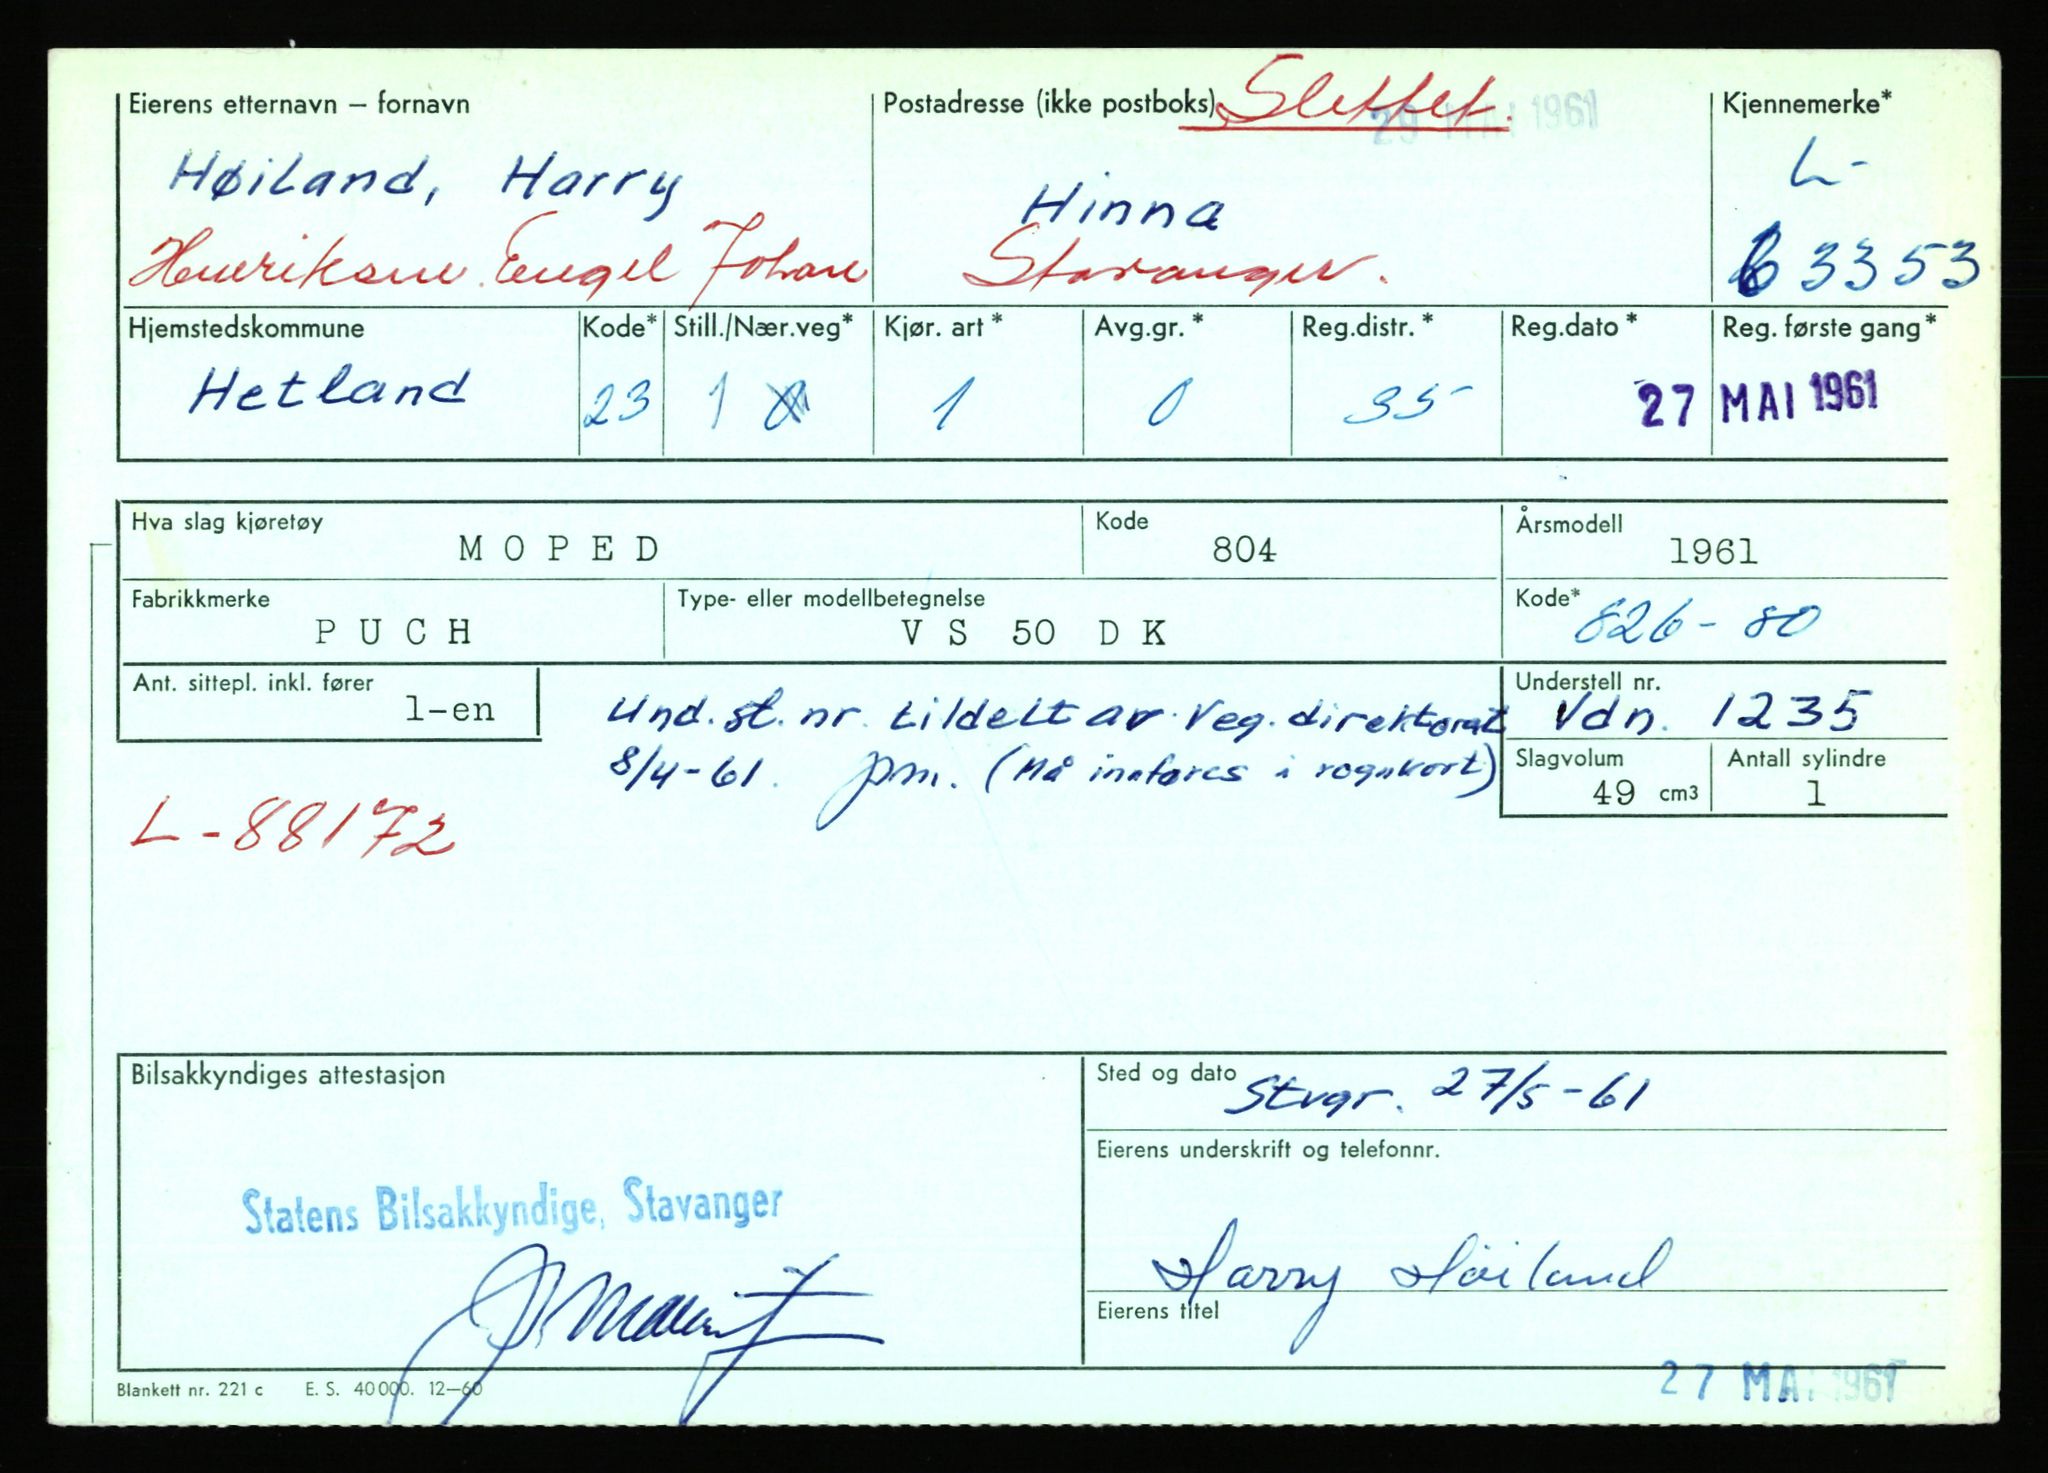 Eierens etternavn – fornavn
Postadresse (ikke postboks) Slettet.
29 MAI 1961
Kjennemerke*
Høiland, Harry
Hinna
L-
Henriksen Engel Johan
Stavanger.
63353
Hjemstedskommune Kode* Still./Nær.veg* Kjør. art* Avg.gr.* Reg.distr.* Reg.dato* Reg. første gang*
Hetland 23 1 1 0 35 27 MAI 1961
Hva slag kjøretøy
MOPED
Kode
804
Årsmodell
1961
Fabrikkmerke
PUCH
Type- eller modellbetegnelse
VS 50 DK
Kode*
826-80
Ant. sittepl. inkl. fører
1-en
Und.st.nr. tildelt av Veg.direktorat
8/4-61. pm. (Må innføres i vognkort)
Understell nr.
Vdn. 1235
Slagvolum
49 cm3
Antall sylindre
1
L-88172
Bilsakkyndiges attestasjon
Statens Bilsakkyndige, Stavanger
Sted og dato
Stvgr. 27/5-61
Eierens underskrift og telefonnr.
Harry Høiland
Eierens titel
27 MAI 1961
Blankett nr. 221 c E. S. 40 000. 12–60